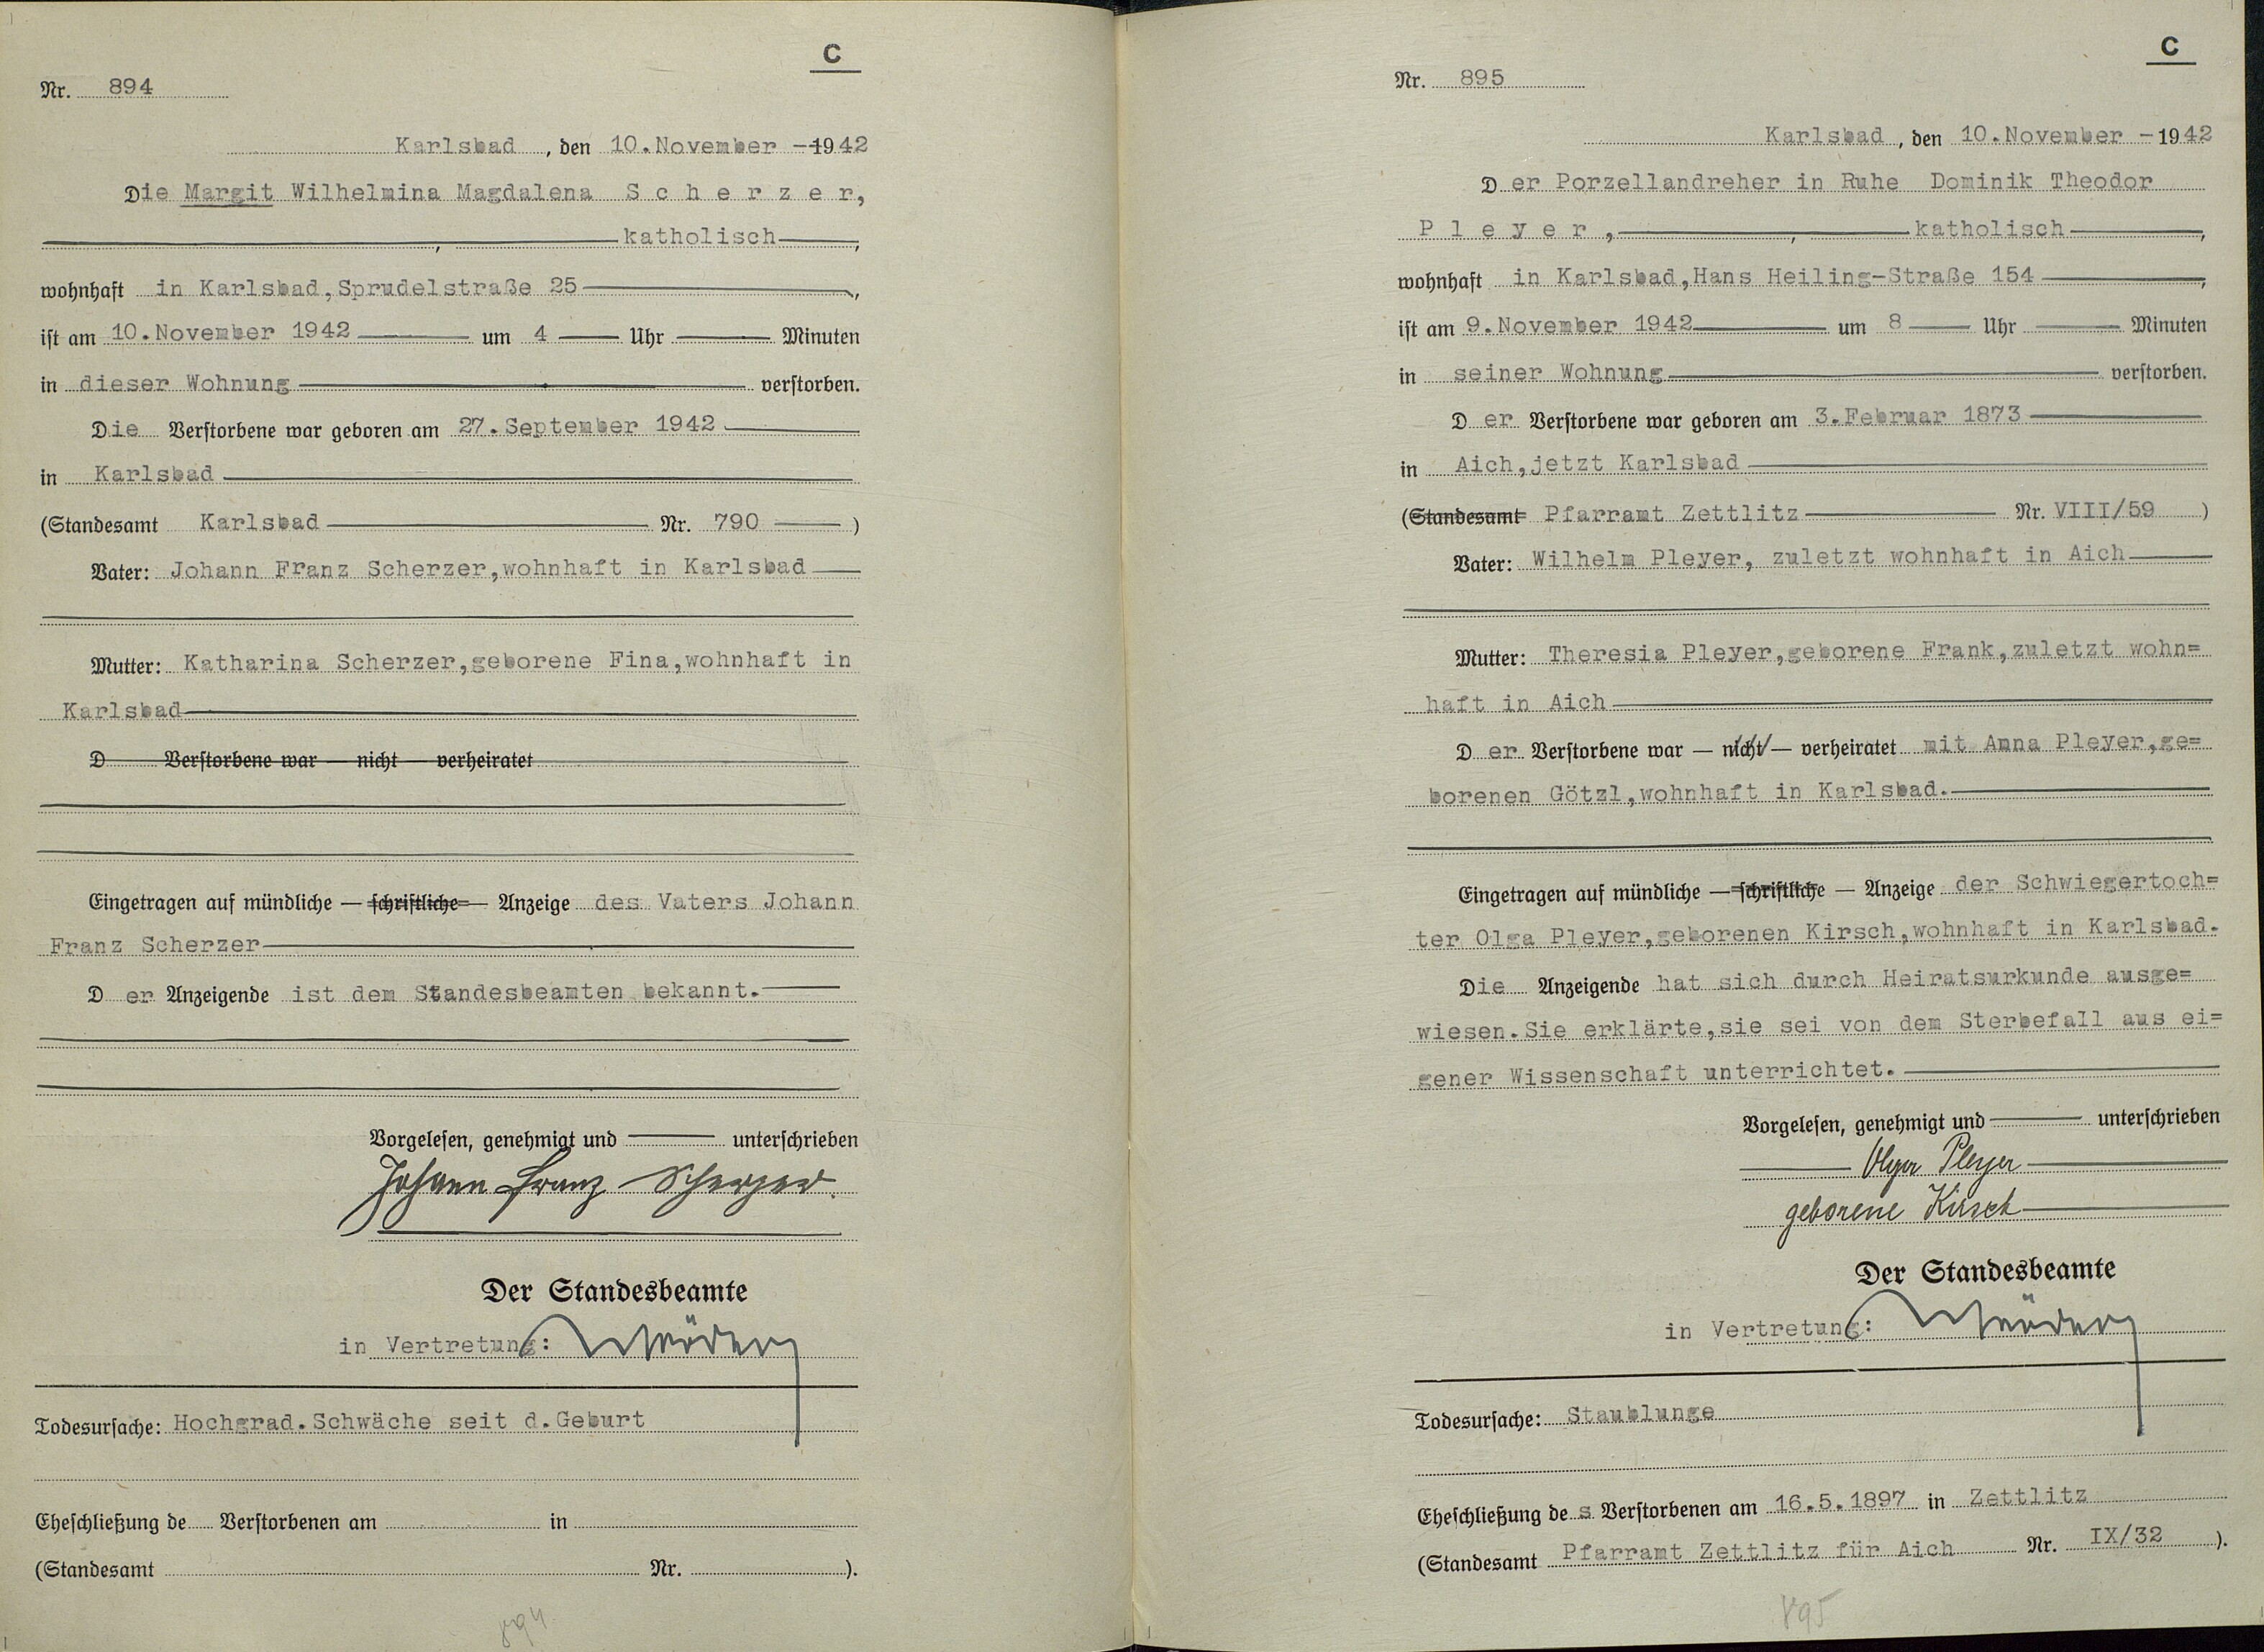 C
Nr. 894
Karlsbad, den 10.November -1942
Die Margit Wilhelmina Magdalena S c h e r z e r,
, katholisch,
wohnhaft in Karlsbad,Sprudelstraße 25,
ist am 10.November 1942 um 4 Uhr Minuten
in dieser Wohnung verstorben.
Die Verstorbene war geboren am 27.September 1942
in Karlsbad
(Standesamt Karlsbad Nr. 790 )
Vater: Johann Franz Scherzer,wohnhaft in Karlsbad
Mutter: Katharina Scherzer,geborene Fina,wohnhaft in
Karlsbad
D Verstorbene war — nicht — verheiratet
Eingetragen auf mündliche — schriftliche — Anzeige des Vaters Johann
Franz Scherzer
D er Anzeigende ist dem Standesbeamten bekannt.
Vorgelesen, genehmigt und unterschrieben
Johann Franz Scherzer.
Der Standesbeamte
in Vertretung:
Todesursache: Hochgrad.Schwäche seit d.Geburt
Eheschließung de Verstorbenen am in
(Standesamt Nr. ).
894
C
Nr. 895
Karlsbad, den 10.November -1942
D er Porzellandreher in Ruhe Dominik Theodor
P l e y e r , , katholisch,
wohnhaft in Karlsbad,Hans Heiling-Straße 154,
ist am 9.November 1942 um 8 Uhr Minuten
in seiner Wohnung verstorben.
D er Verstorbene war geboren am 3.Februar 1873
in Aich,jetzt Karlsbad
(Standesamt Pfarramt Zettlitz Nr. VIII/59 )
Vater: Wilhelm Pleyer, zuletzt wohnhaft in Aich
Mutter: Theresia Pleyer,geborene Frank,zuletzt wohn=
haft in Aich
D er Verstorbene war — nicht — verheiratet mit Anna Pleyer,ge=
borenen Götzl,wohnhaft in Karlsbad.
Eingetragen auf mündliche — schriftliche — Anzeige der Schwiegertoch=
ter Olga Pleyer,geborenen Kirsch,wohnhaft in Karlsbad.
Die Anzeigende hat sich durch Heiratsurkunde ausge=
wiesen.Sie erklärte,sie sei von dem Sterbefall aus ei=
gener Wissenschaft unterrichtet.
Vorgelesen, genehmigt und unterschrieben
Olga Pleyer
geborene Kirsch
Der Standesbeamte
in Vertretung:
Todesursache: Staublunge
Eheschließung de s Verstorbenen am 16.5.1897 in Zettlitz
(Standesamt Pfarramt Zettlitz für Aich Nr. IX/32 ).
895